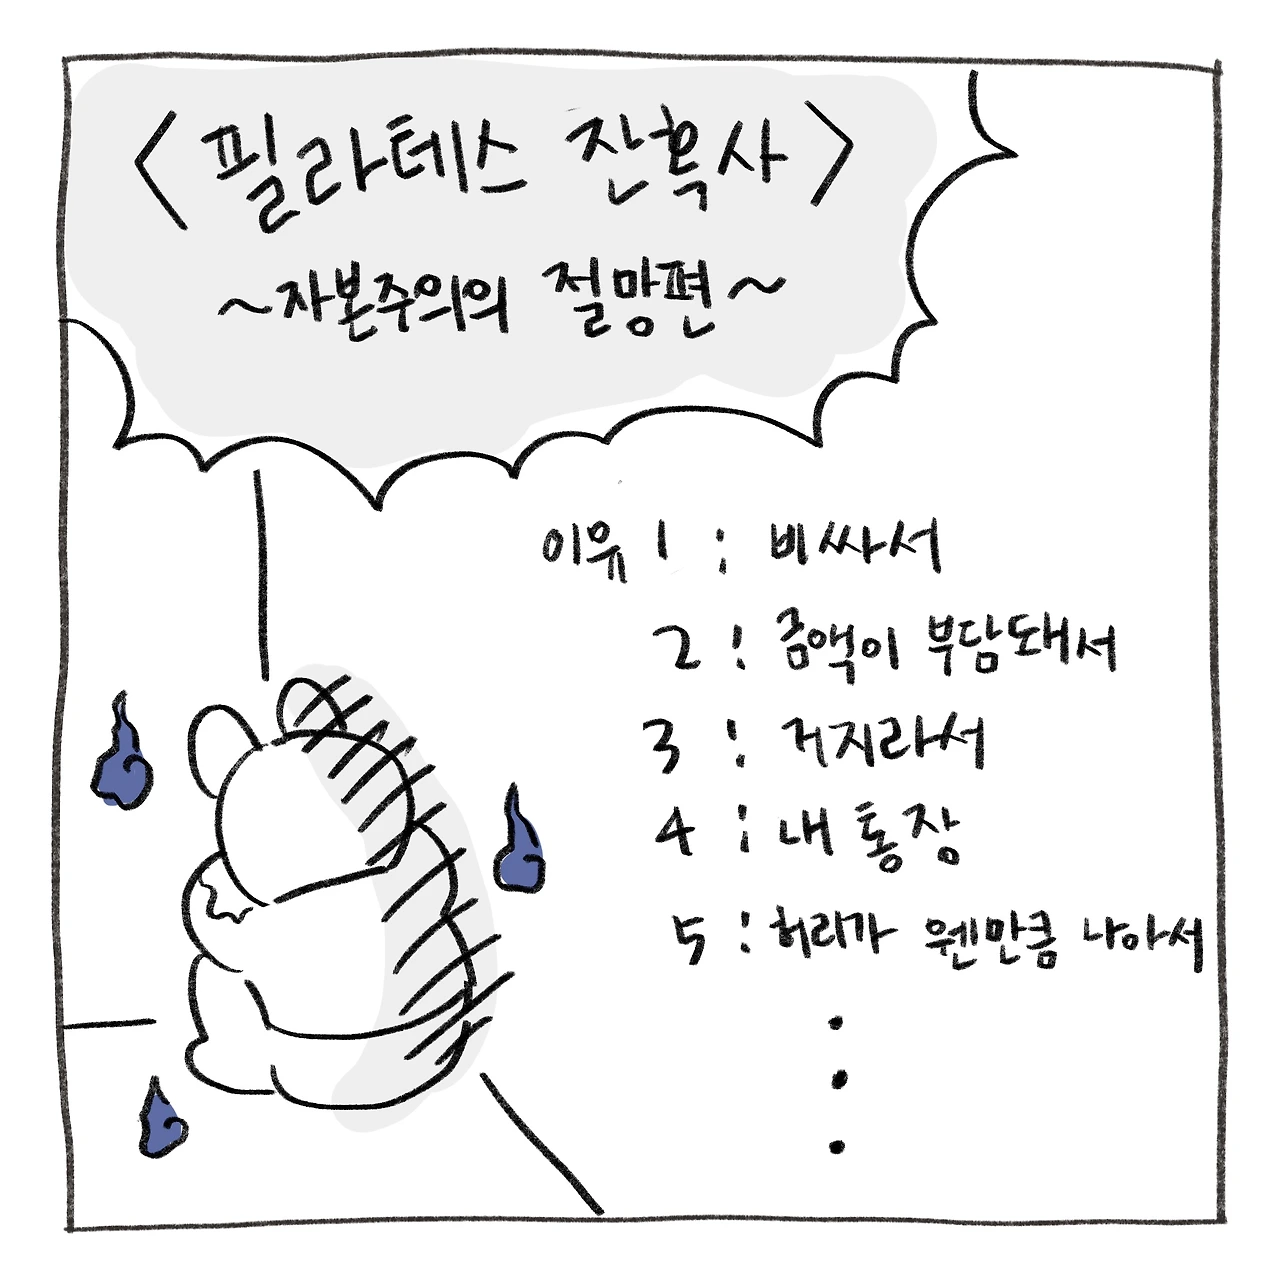 <필라테스 잔혹사>
~자본주의의 절망편~
이유 1 : 비싸서
2 : 금액이 부담돼서
3 : 거지라서
4 : 내 통장
5 : 허리가 웬만큼 나아서